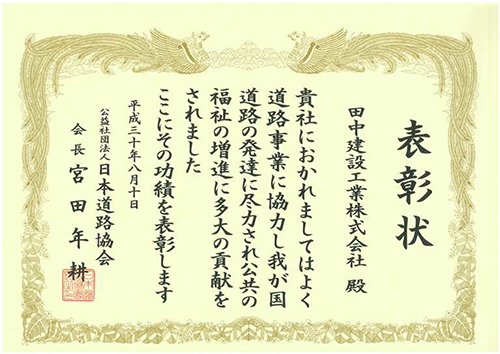 表彰状
田中建設工業株式会社 殿
貴社におかれましてはよく
道路事業に協力し我が国
道路の発達に尽力され公共の
福祉の増進に多大の貢献を
されました
ここにその功績を表彰します
平成三十年八月十日
公益社団法人 日本道路協会
会長 宮田年耕